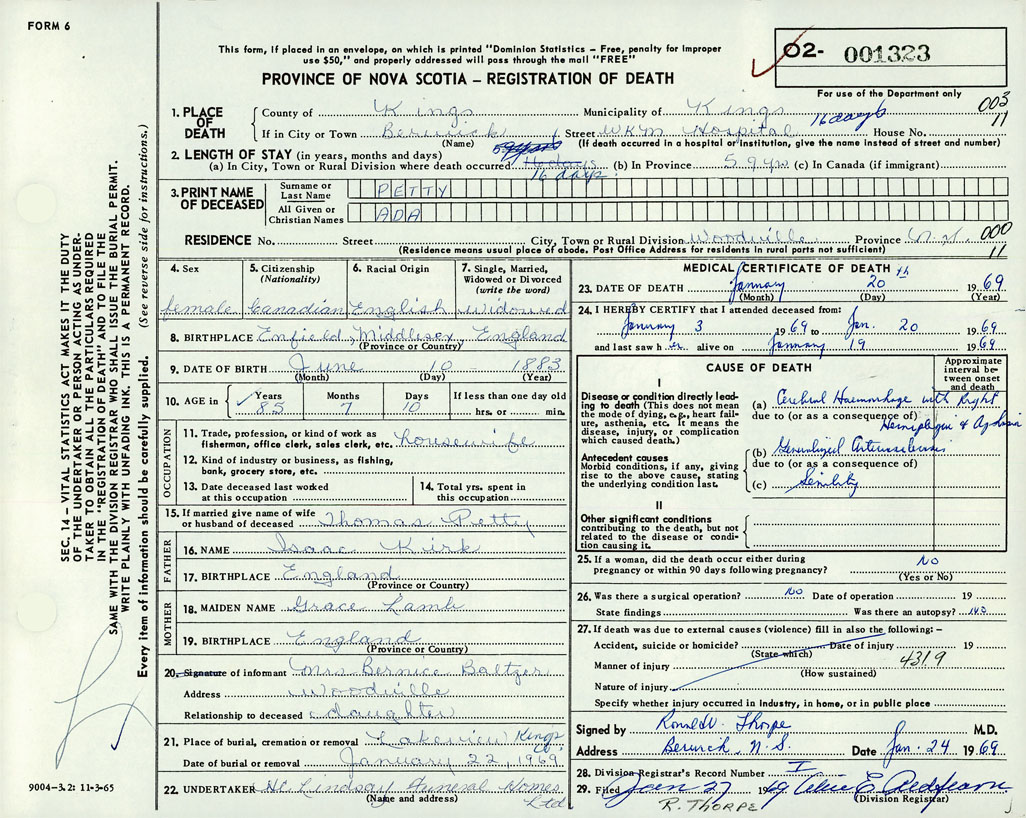 FORM 6
This form, if placed in an envelope, on which is printed "Dominion Statistics – Free, penalty for improper
use $50," and properly addressed will pass through the mail "FREE"
PROVINCE OF NOVA SCOTIA – REGISTRATION OF DEATH
02- 001323
For use of the Department only
003
11
1. PLACE OF DEATH
County of Kings Municipality of Kings
16 days
If in City or Town Berwick Street WKM Hospital House No.
(Name) (If death occurred in a hospital or institution, give the name instead of street and number)
2. LENGTH OF STAY (in years, months and days) 59 years
(a) In City, Town or Rural Division where death occurred 16 days (b) In Province 59 yrs (c) In Canada (if immigrant)
16 days
3. PRINT NAME OF DECEASED
Surname or Last Name PETTY
All Given or Christian Names ADA
RESIDENCE No. Street City, Town or Rural Division Woodville Province N.S.
000
11
(Residence means usual place of abode. Post Office Address for residents in rural parts not sufficient)
4. Sex
female
5. Citizenship (Nationality)
Canadian
6. Racial Origin
English
7. Single, Married, Widowed or Divorced (write the word)
Widowed
8. BIRTHPLACE Enfield, Middlesex, England
(Province or Country)
9. DATE OF BIRTH June 10 1883
(Month) (Day) (Year)
10. AGE in Years Months Days If less than one day old
85 7 10 hrs. or min.
OCCUPATION
11. Trade, profession, or kind of work as fisherman, office clerk, sales clerk, etc. housewife
12. Kind of industry or business, as fishing,
bank, grocery store, etc.
13. Date deceased last worked at this occupation
14. Total yrs. spent in this occupation
15. If married give name of wife or husband of deceased Thomas Petty
FATHER
16. NAME Isaac Kirk
17. BIRTHPLACE England
(Province or Country)
MOTHER
18. MAIDEN NAME Grace Lamb
19. BIRTHPLACE England
(Province or Country)
20. Signature of informant Mrs Bernice Baltzer
Address Woodville
Relationship to deceased daughter
21. Place of burial, cremation or removal Lakeview Kings Co.
Date of burial or removal January 22, 1969
22. UNDERTAKER H.C. Lindsay Funeral Homes Ltd
(Name and address)
MEDICAL CERTIFICATE OF DEATH
23. DATE OF DEATH January 20th 1969
(Month) (Day) (Year)
24. I HEREBY CERTIFY that I attended deceased from:
January 3 1969 to Jan. 20 1969
and last saw her alive on January 19 1969
CAUSE OF DEATH
Approximate interval between onset and death
I
Disease or condition directly leading to death (This does not mean the mode of dying, e.g., heart failure, asthenia, etc. It means the disease, injury, or complication which caused death.)
(a) Cerebral Haemorrhage with Right
due to (or as a consequence of) Hemiplegia & Aphasia
Antecedent causes
Morbid conditions, if any, giving rise to the above cause, stating the underlying condition last.
(b) Generalized Arteriosclerosis
due to (or as a consequence of)
(c) Senility
II
Other significant conditions
contributing to the death, but not related to the disease or condition causing it.
25. If a woman, did the death occur either during
pregnancy or within 90 days following pregnancy? No
(Yes or No)
26. Was there a surgical operation? No Date of operation 19
State findings Was there an autopsy? no
27. If death was due to external causes (violence) fill in also the following: –
Accident, suicide or homicide? Date of injury 19
(State which)
Manner of injury 4319
(How sustained)
Nature of injury
Specify whether injury occurred in industry, in home, or in public place
Signed by Ronald V. Thorpe M.D.
Address Berwick, N.S. Date Jan. 24 1969
28. Division Registrar's Record Number I
29. Filed Jan 27 1969
(Division Registrar)
R. THORPE
SEC. 14 – VITAL STATISTICS ACT MAKES IT THE DUTY
OF THE UNDERTAKER OR PERSON ACTING AS UNDER-
TAKER TO OBTAIN ALL THE PARTICULARS REQUIRED
IN THE "REGISTRATION OF DEATH" AND TO FILE THE
SAME WITH THE DIVISION REGISTRAR WHO SHALL ISSUE THE BURIAL PERMIT.
WRITE PLAINLY WITH UNFADING INK. THIS IS A PERMANENT RECORD.
Every item of information should be carefully supplied. (See reverse side for instructions.)
9004-3.2: 11-3-65